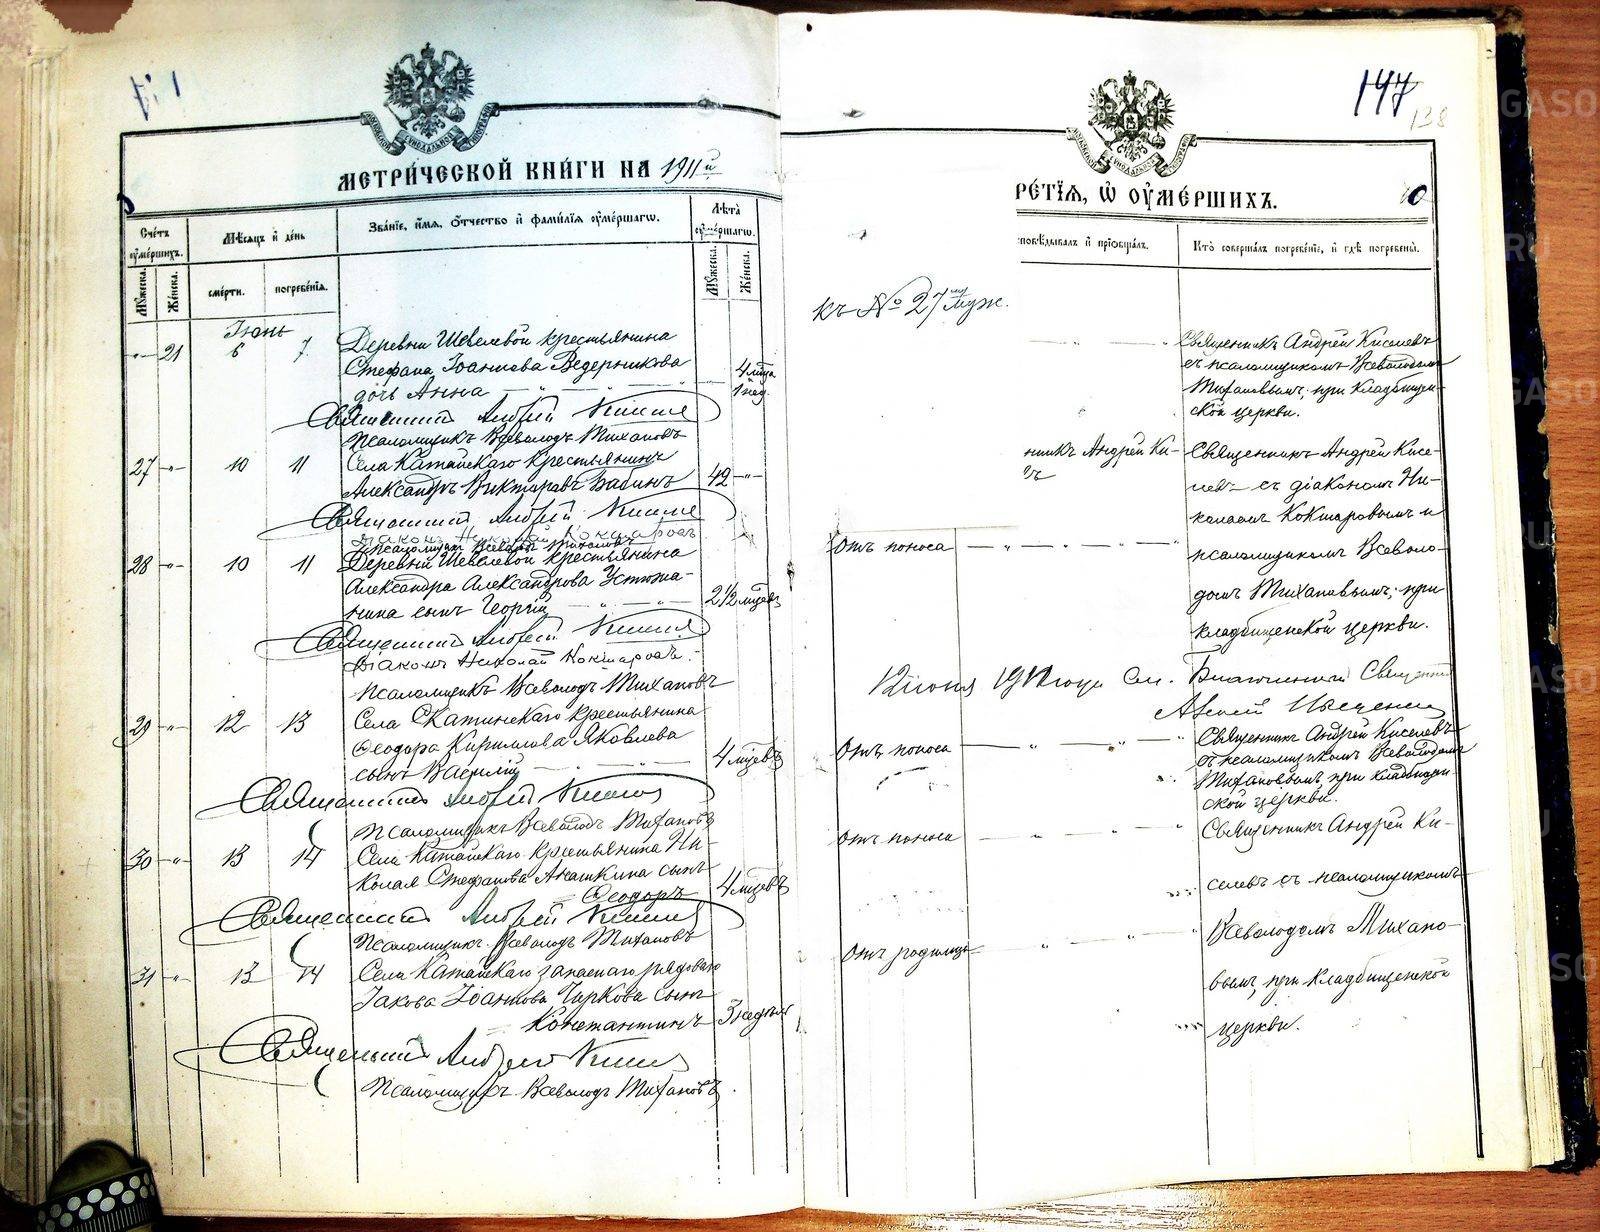 МЕТРИ́ЧЕСКОЙ КНИ́ГИ НА 1911й
Счетъ ᲂумершихъ.
Мѣсяцъ и день
Званіе, имя, отчество и фамилія ᲂумершагѡ.
Лѣта ᲂумершагѡ.
Мужеска.
Женска.
смерти.
погребенія.
Мужеска.
Женска.
Іюнь
21 6 7 Деревни Шевелевой крестьянина
Стефана Іоаннова Ведерникова
дочь Анна
4 мѣца
1 нед.
Священникъ Андрей Киселевъ
Псаломщикъ Всеволодъ Тихановъ
27 10 11 Села Катайскаго крестьянинъ
Александръ Викторовъ Бабинъ 42
Священникъ Андрей Киселевъ
Діаконъ Николай Кокшаровъ
Псаломщикъ Всеволодъ Тихановъ
28 10 11 Деревни Шевелевой крестьянина
Александра Александрова Устюжа-
нина сынъ Георгій 2 1/2 мѣцевъ
Священникъ Андрей Киселевъ
Діаконъ Николай Кокшаровъ.
Псаломщикъ Всеволодъ Тихановъ
29 12 13 Села Скатинскаго крестьянина
Ѳеодора Кириллова Яковлева
сынъ Василій 4 мѣцевъ
Священникъ Андрей Киселевъ
Псаломщикъ Всеволодъ Тихановъ
30 13 14 Села Катайскаго крестьянина Ни-
колая Стефанова Анашкина сынъ
Ѳеодоръ 4 мѣцевъ
Священникъ Андрей Киселевъ
Псаломщикъ Всеволодъ Тихановъ
31 13 14 Села Катайскаго запаснаго рядового
Іакова Іоаннова Чиркова сынъ
Константинъ 3 недѣли
Священникъ Андрей Киселевъ
Псаломщикъ Всеволодъ Тихановъ.
147
138
РЕТІЯ, Ѡ ᲂУМЕРШИХЪ.
повѣдывалъ и пріобщалъ.
Кто совершалъ погребеніе, и гдѣ погребены.
къ № 27му муж.
Священникъ Андрей Киселевъ
съ псаломщикомъ Всеволодомъ
Тихановымъ; при кладбищен-
ской церкви.
нникъ Андрей Ки-
Священникъ Андрей Кисе-
левъ съ діакономъ Ни-
колаемъ Кокшаровымъ и
Отъ поноса
псаломщикомъ Всеволо-
домъ Тихановымъ; при
кладбищенской церкви.
Священникъ Андрей Киселевъ
Отъ поноса
съ псаломщикомъ Всеволодомъ
Тихановымъ, при кладбищен-
ской церкви.
Отъ поноса
Священникъ Андрей Ки-
селевъ съ псаломщикомъ
Всеволодомъ Тихано-
Отъ родимца
вымъ, при кладбищенской
церкви.